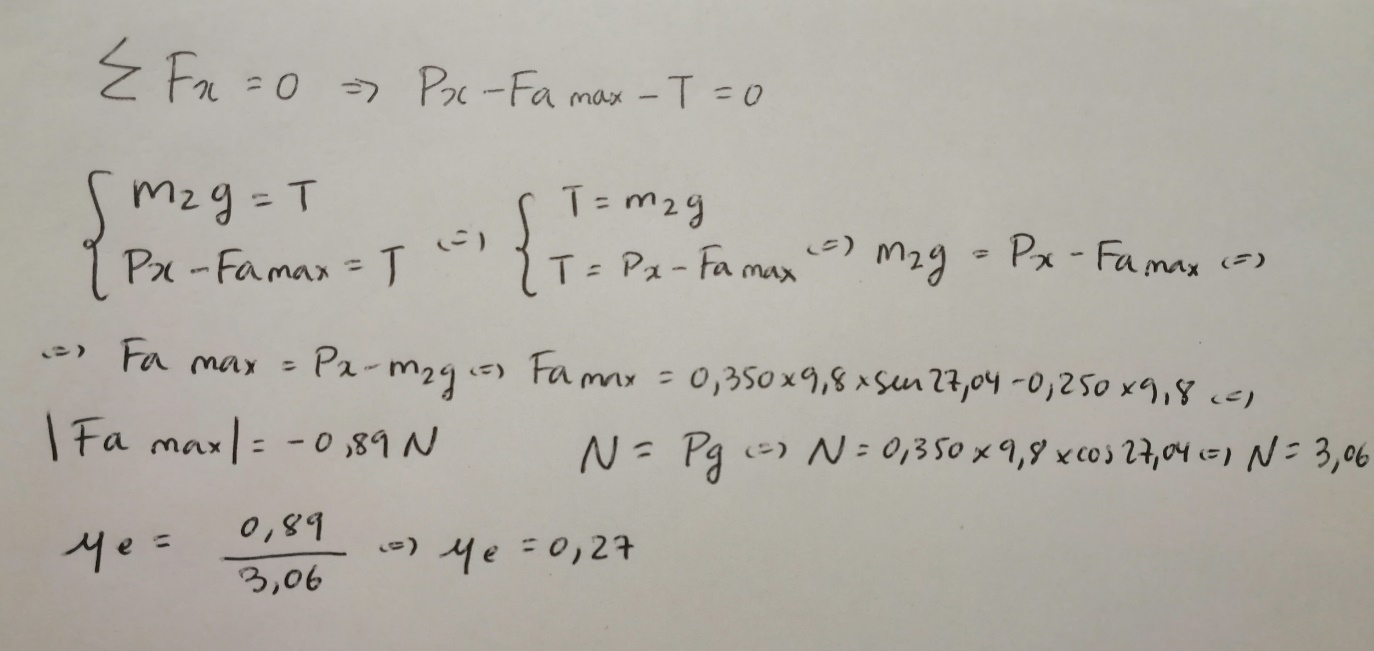 Σ Fx = 0 => Px - Fa max - T = 0
{ m2g = T <=> { T = m2g
{ Px - Fa max = T <=> { T = Px - Fa max <=> m2g = Px - Fa max <=>
<=> Fa max = Px - m2g <=> Fa max = 0,350 x 9,8 x sen 27,04 - 0,250 x 9,8 <=>
|Fa max| = -0,89 N N = Pg <=> N = 0,350 x 9,8 x cos 27,04 <=> N = 3,06
μe = 0,89 / 3,06 <=> μe = 0,27